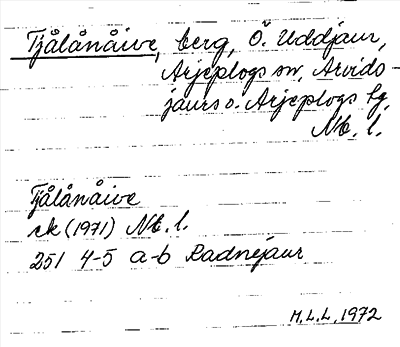 Tjålånåive, berg, Ö. Uddjaur,
Arjeplogs sn, Arvids-
jaurs o. Arjeplogs lg,
Nb. l.
Tjålånåive
ek (1971) Nb. l.
251 4-5 a-b Radnejaur
M.L.L. 1972